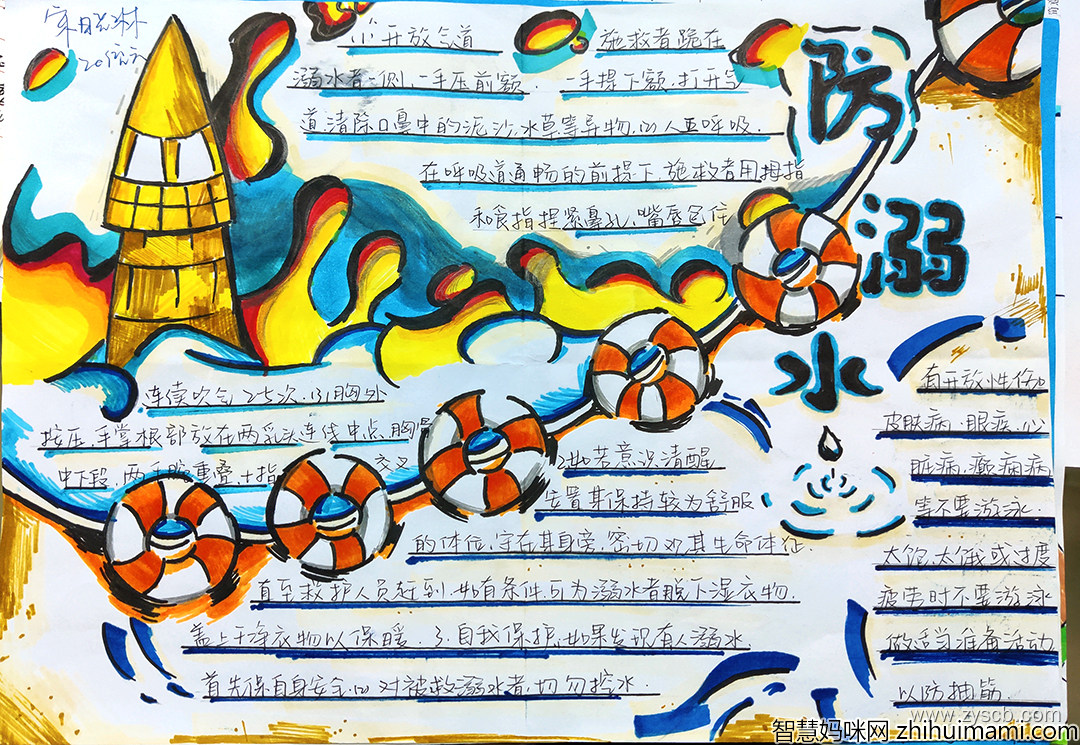 防溺水
(1)开放气道 施救者跪在
溺水者一侧,一手压前额. 一手提下额.打开气
道,清除口鼻中的泥沙.水草等异物.(2)人工呼吸.
在呼吸道通畅的前提下,施救者用拇指
和食指捏紧鼻孔.嘴唇包住
连续吹气 2-5次.(3)胸外
按压.手掌根部放在两乳头连线中点.胸
中下段.两手重叠.十指 交叉
2.如若意识清醒
安置其保持较为舒服
的体位.守在其身旁.密切观其生命体征.
直至救护人员赶到.如有条件可为溺水者脱下湿衣物.
盖上干净衣物以保暖. 3.自我保护.如果发现有人溺水
首先保自身安全.(2)对被救溺水者.切勿控水.
有开放性伤口
皮肤病.眼疾.心
脏病.癫痫病
等不要游泳.
太饱.太饿或过度
疲劳时不要游泳
做适当准备活动
以防抽筋.
www.zyscb.com
智慧妈咪网 zhihuimami.com